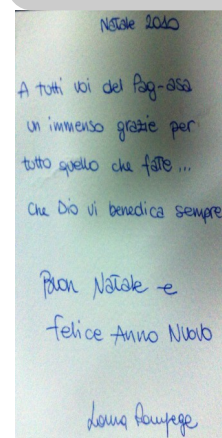 Natale 2010
A tutti voi del Pag-asa
un immenso grazie per
tutto quello che fate ...
Che Dio vi benedica sempre
Buon Natale e
felice Anno Nuovo